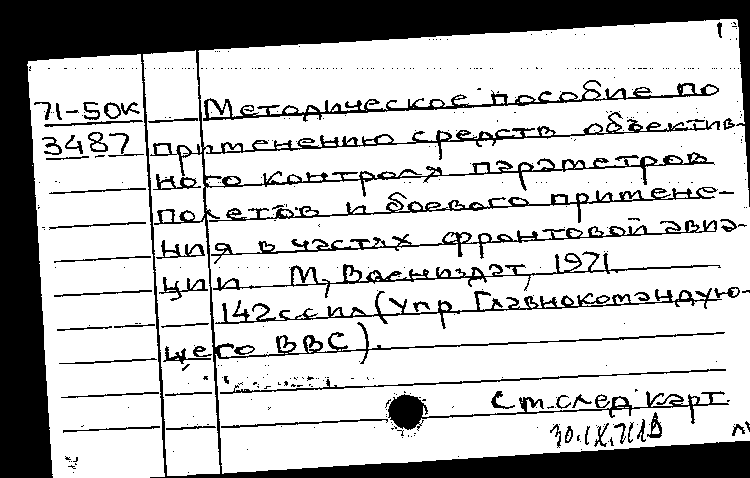 71-50к Методическое пособие по
3487 применению средств объектив-
ного контроля параметров
полетов и боевого примене-
ния в частях фронтовой авиа-
ции. М, Воениздат, 1971.
142с сил (Упр. Главнокомандую-
щего ВВС).
См. след карт
30.IX.71